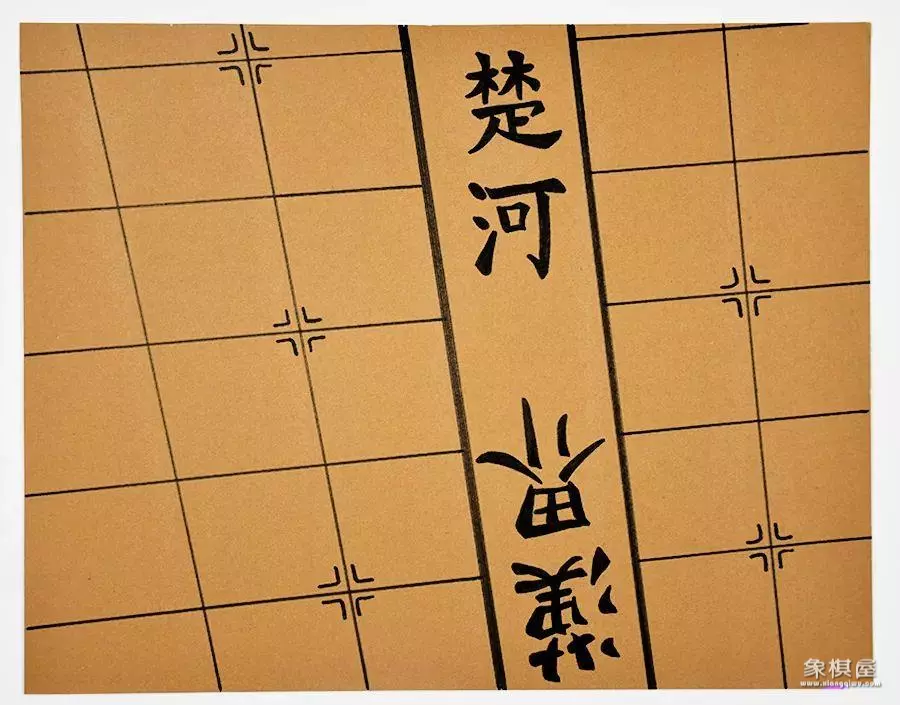 楚河
漢界
象棋屋
www.xiangqiwu.com